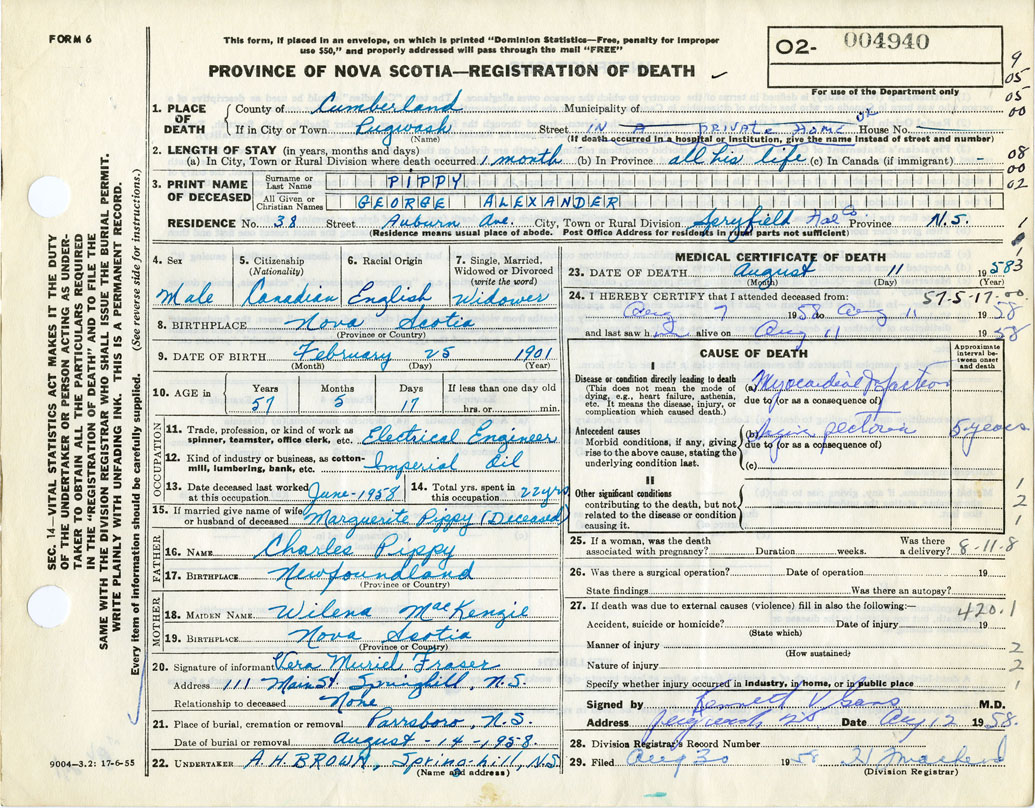 FORM 6
This form, if placed in an envelope, on which is printed "Dominion Statistics—Free, penalty for improper
use $50," and properly addressed will pass through the mail "FREE"
PROVINCE OF NOVA SCOTIA—REGISTRATION OF DEATH
O2- 004940
For use of the Department only
9
05
05
00
08
00
02
1
3
SEC. 14—VITAL STATISTICS ACT MAKES IT THE DUTY
OF THE UNDERTAKER OR PERSON ACTING AS UNDER-
TAKER TO OBTAIN ALL THE PARTICULARS REQUIRED
IN THE "REGISTRATION OF DEATH" AND TO FILE THE
SAME WITH THE DIVISION REGISTRAR WHO SHALL ISSUE THE BURIAL PERMIT.
WRITE PLAINLY WITH UNFADING INK. THIS IS A PERMANENT RECORD.
Every item of information should be carefully supplied. (See reverse side for instructions.)
1. PLACE OF DEATH
County of Cumberland Municipality of
If in City or Town Pugwash Street IN A PRIVATE HOME House No.
(Name) (If death occurred in a hospital or institution, give the name instead of street and number)
2. LENGTH OF STAY (in years, months and days)
(a) In City, Town or Rural Division where death occurred 1 month (b) In Province all his life (c) In Canada (if immigrant) -
3. PRINT NAME OF DECEASED
Surname or Last Name PIPPY
All Given or Christian Names GEORGE ALEXANDER
RESIDENCE No. 38 Street Auburn Ave. City, Town or Rural Division Seryfield Hal Co Province N.S.
(Residence means usual place of abode. Post Office Address for residents in rural parts not sufficient)
4. Sex
Male
5. Citizenship
(Nationality)
Canadian
6. Racial Origin
English
7. Single, Married,
Widowed or Divorced
(write the word)
Widower
8. BIRTHPLACE Nova Scotia
(Province or Country)
9. DATE OF BIRTH February 25 1901
(Month) (Day) (Year)
10. AGE in
Years Months Days If less than one day old
57 5 17 hrs. or min.
OCCUPATION
11. Trade, profession or kind of work as
spinner, teamster, office clerk, etc. Electrical Engineer
12. Kind of industry or business, as cotton-
mill, lumbering, bank, etc. Imperial Oil
13. Date deceased last worked
at this occupation June-1958
14. Total yrs. spent in
this occupation 22yrs.
15. If married give name of wife
or husband of deceased Marguerite Pippy (Deceased)
FATHER
16. NAME Charles Pippy
17. BIRTHPLACE Newfoundland
(Province or Country)
MOTHER
18. MAIDEN NAME Wilena MacKenzie
19. BIRTHPLACE Nova Scotia
(Province or Country)
20. Signature of informant Vera Muriel Fraser
Address 111 Main St. Springhill, N.S.
Relationship to deceased None
21. Place of burial, cremation or removal Parrsboro, N.S.
Date of burial or removal August-14-1958.
22. UNDERTAKER A.H. BROWN, Spring-hill, N.S.
(Name and address)
9004-3.2: 17-6-55
MEDICAL CERTIFICATE OF DEATH
23. DATE OF DEATH August 11 1958
(Month) (Day) (Year)
24. I HEREBY CERTIFY that I attended deceased from: 57-5-17-00
Aug 7 1958 to Aug 11 1958
and last saw h alive on Aug 11 1958
CAUSE OF DEATH
Approximate
interval be-
tween onset
and death
I
Disease or condition directly leading to death
(This does not mean the mode of
dying, e.g., heart failure, asthenia,
etc. It means the disease, injury, or
complication which caused death.)
(a) Myocardial Infarction
due to (or as a consequence of)
Antecedent causes
Morbid conditions, if any, giving
rise to the above cause, stating the
underlying condition last.
(b) Angina pectoris 5 years
due to (or as a consequence of)
(c)
II
Other significant conditions
contributing to the death, but not
related to the disease or condition
causing it.
1
2
1
25. If a woman, was the death
associated with pregnancy? Duration weeks. Was there
a delivery? 8-11-8
26. Was there a surgical operation? Date of operation 19
State findings Was there an autopsy?
27. If death was due to external causes (violence) fill in also the following:—
420.1
Accident, suicide or homicide? Date of injury 19
(State which)
Manner of injury 2
(How sustained)
Nature of injury 2
Specify whether injury occurred in industry, in home, or in public place 1
Signed by Kenneth V Gass M.D.
Address Pugwash, NS Date Aug 12 1958.
28. Division Registrar's Record Number
29. Filed Aug 30 1958 H
(Division Registrar)